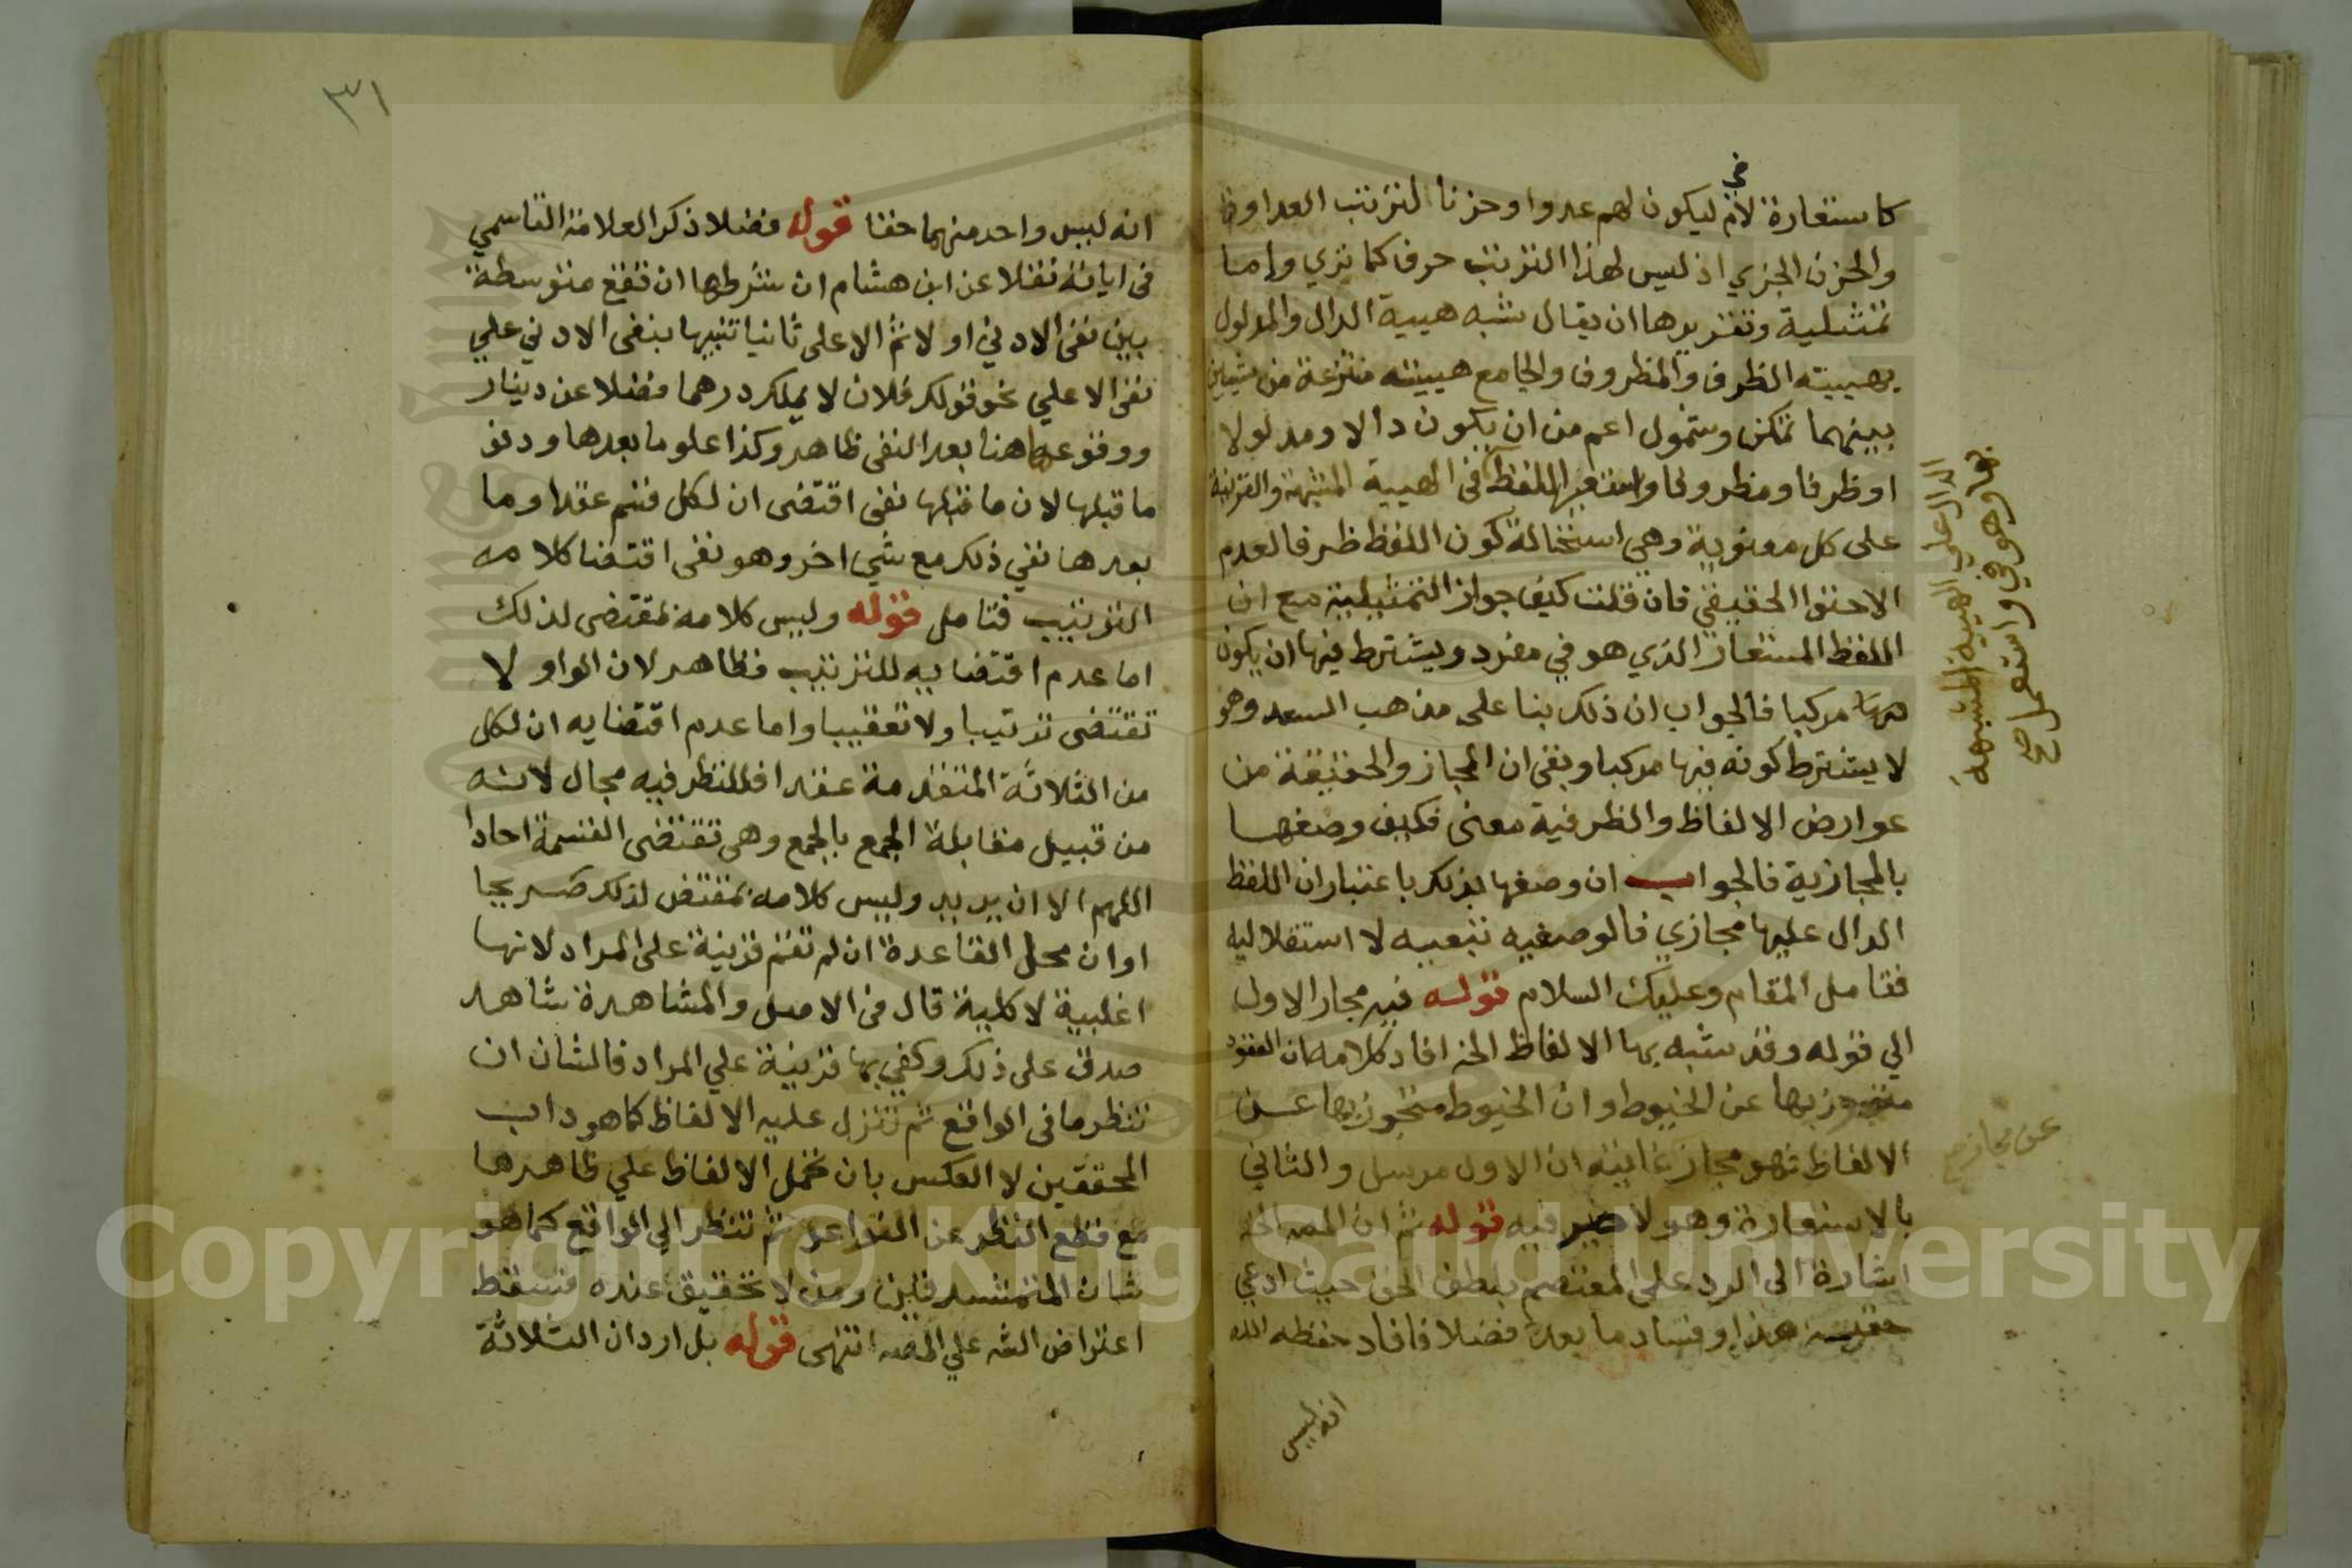 كاستعارة لام في ليكون لهم عدوا وحزنا لترتب العداوة
والحزن الجزي اذ ليس لهذا الترتب حرف كما تري واما
تمثيلية وتقريرها ان يقال شبه هيية الدال والمدلول
بهيية الظرف والمظروف والجامع هيية منتزعة من شيين
بينهما تمكن وشمول اعم من ان يكون دالا ومدلولا
او ظرفا ومظروفا واستعير اللفظ في الهيية المشبهة والقرينة
على كل معنوية وهي استحالة كون اللفظ ظرفا لعدم
الاحتوا الحقيقي فان قلت كيف جواز التمثيلية مع ان
اللفظ المستعار الذي هو في مفرد ويشترط فيها ان يكون
مركبا فالجواب ان ذلك بنا على مذهب السعد وهو
لا يشترط كونه فيها مركبا وبقى ان المجاز والحقيقة من
عوارض الالفاظ والظرفية معنى فكيف وصفها
بالمجازية فالجواب ان وصفها بذلك باعتبار ان اللفظ
الدال عليها مجازي فالوصفيه تبعيه لا استقلاليه
فتامل المقام وعليك السلام قوله فيه مجاز الاول
الي قوله وقد شبه بها الالفاظ الخ افاد كلامه ان العقود
متجوز بها عن الخيوط وان الخيوط متجوز بها عن
الالفاظ فهو مجاز غايته ان الاول مرسل والثاني
بالاستعارة وهو لا ضير فيه قوله ثم ان المصـ الخ
اشارة الى الرد على المعتصم بلطف الحق حيث ادعي
هذا وفساد ما بعده فضلا فافاد حفظه الله
انه ليس
الدال على الهيية المشبهة
بها وهو في واستعمل صح
عن مجاز صح
٣١
انه ليس واحد منهما حقا قوله فضلا ذكر العلامة القاسمي
فى اياته نقلا عن ابن هشام ان شرطها ان تقع متوسطة
بين نفى الادني اولا ثم الاعلى ثانيا تنبيها بنفى الادني علي
نفى الاعلي نحو قولك فلان لا يملك درهما فضلا عن دينار
ووقوعها هنا بعد النفى ظاهر وكذا علو ما بعدها ودنو
ما قبلها لان ما قبلها نفى اقتضى ان لكل قسم عقدا وما
بعدها نفي ذلك مع شي اخر وهو نفى اقتضا كلامه
الترتيب فتامل قوله وليس كلامه بمقتضى لذلك
اما عدم اقتضايه للترتيب فظاهر لان الواو لا
تقتضى ترتيبا ولا تعقيبا واما عدم اقتضايه ان لكل
من الثلاثة المتقدمة عقدا فللنظر فيه مجال لانه
من قبيل مقابلة الجمع بالجمع وهى تقتضى القسمة احادا
اللهم الا ان يريد وليس كلامه بمقتض لذلك صريحا
او ان محل القاعدة ان لم تقم قرينة على المراد لانها
اغلبية لا كلية قال فى الاصل والمشاهدة شاهد
صدق على ذلك وكفي بها قرينة علي المراد فالشان ان
تنظر ما فى الواقع ثم تنزل عليه الالفاظ كما هو داب
المحققين لا العكس بان تحمل الالفاظ علي ظاهرها
مع قطع النظر عن القواعد ثم تنظر الي الواقع كما هو
شان المتمشدقين ومن لا تحقيق عنده فسقط
اعتراض الشـ علي المصـ انتهى قوله بل اراد ان الثلاثة
Copyright © King Saud University